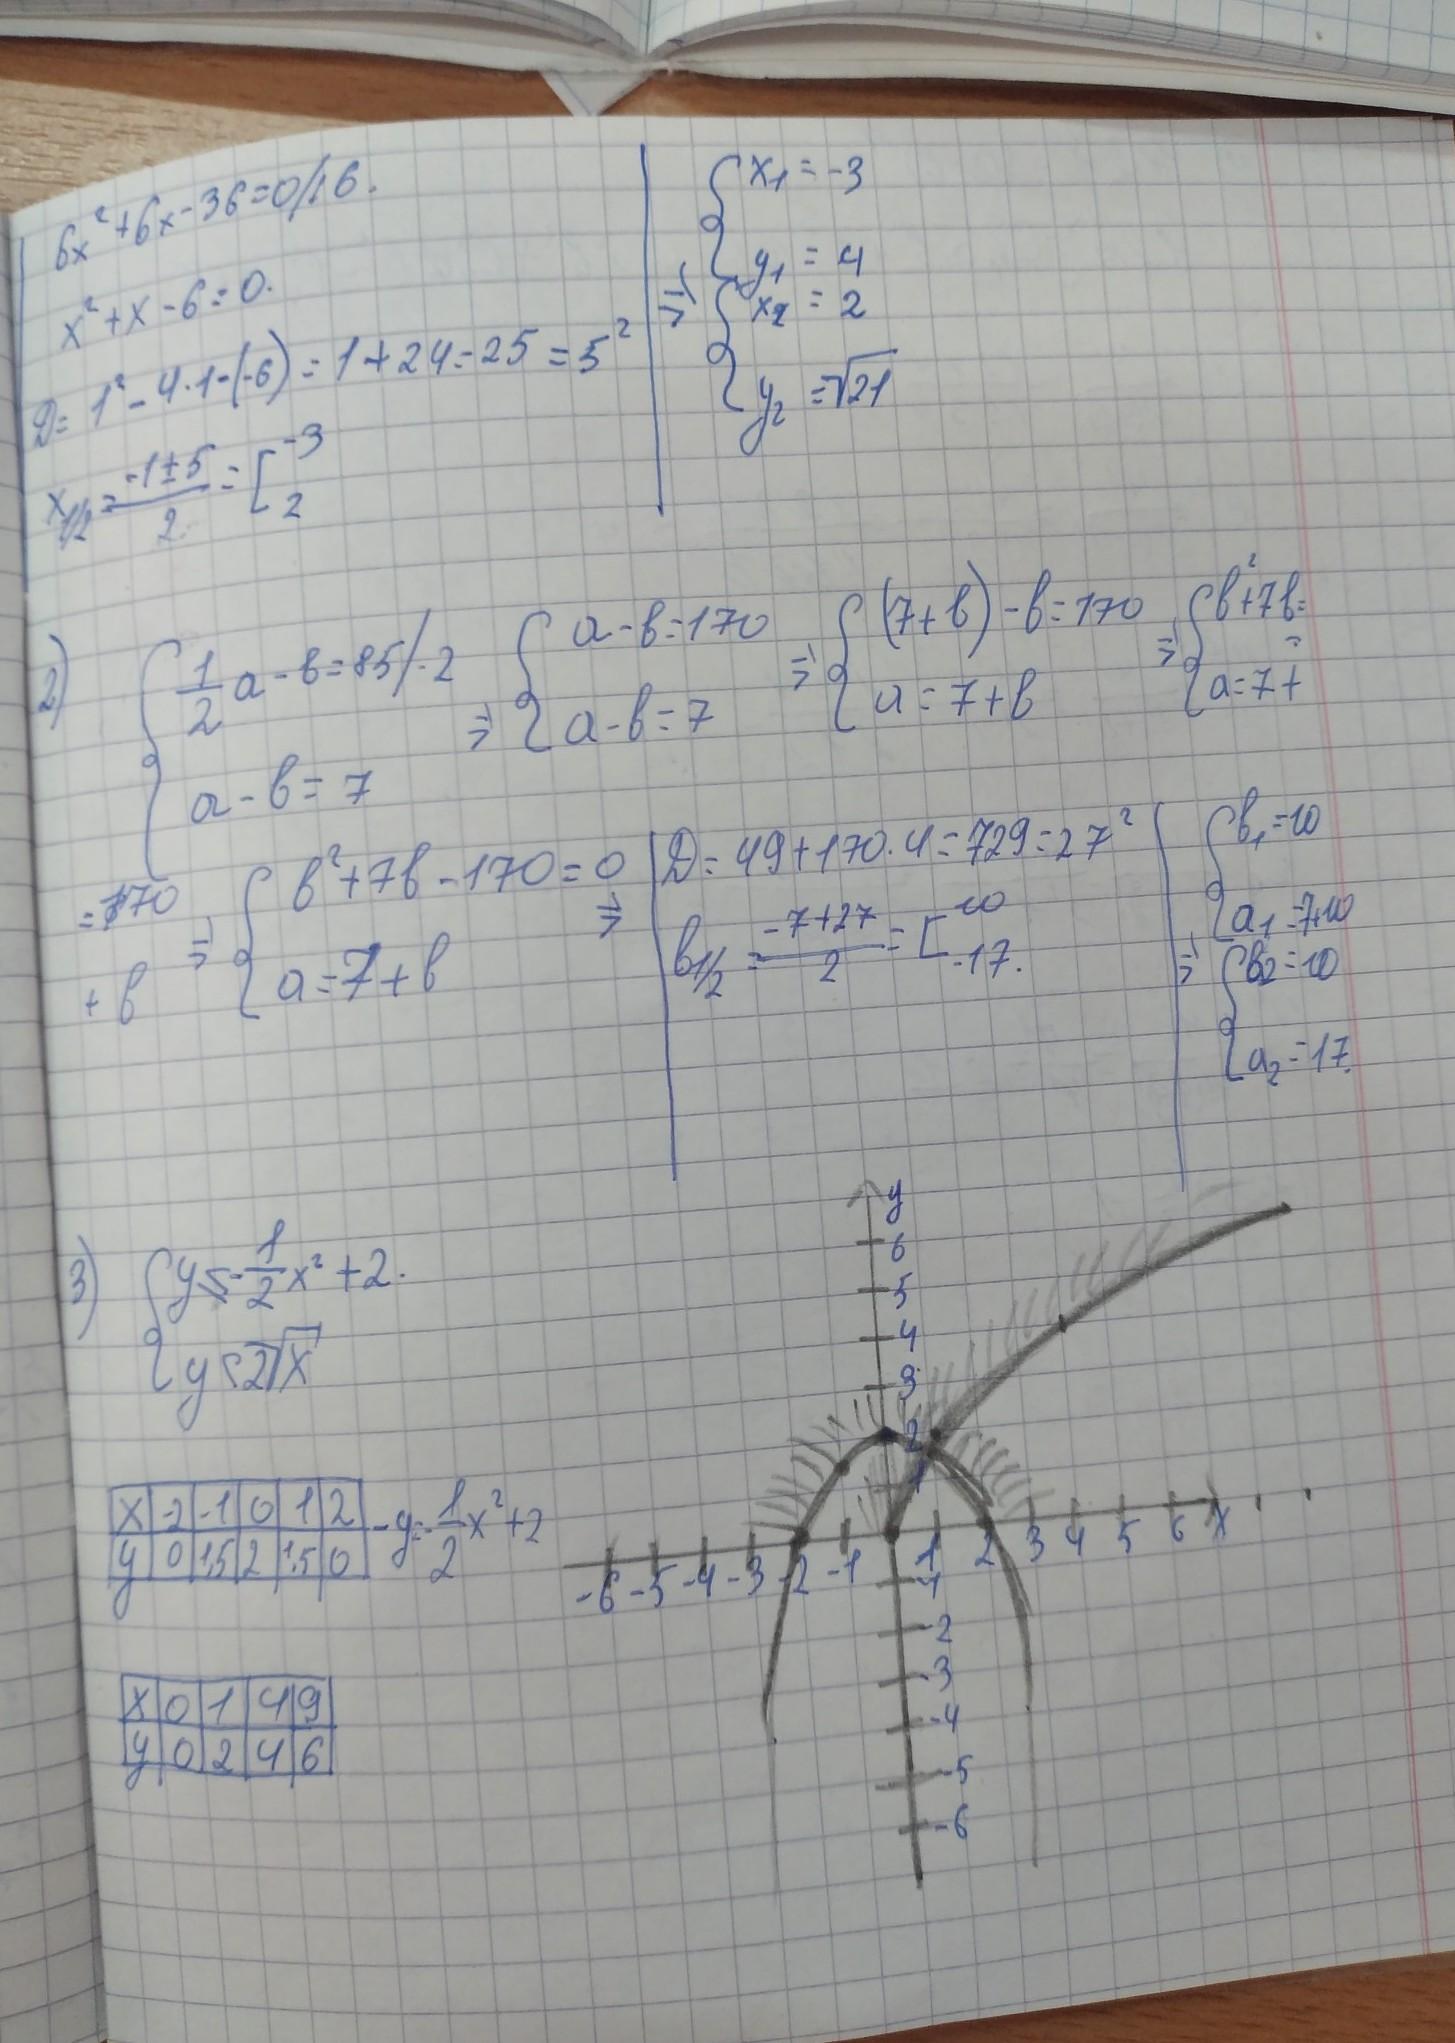 6x²+6x-36=0/:6.
x²+x-6=0.
D=1²-4·1·(-6)=1+24=25=5²
x1/2=(-1±5)/2=[-3
2
=> {x1=-3
y1=4
{x2=2
y2=√21
2) {1/2a-b=85/·2
a-b=7
=> {a-b=170
a-b=7
=> {(7+b)-b=170
a=7+b
=> {b²+7b=
a=7+
=170
+b
=> {b²+7b-170=0
a=7+b
=>
D=49+170·4=729=27²
b1/2=(-7+27)/2=[10
-17.
=> {b1=10
a1=7+10
{b2=10
a2=17.
3) {y≤-1/2x²+2.
y≤2√x
x -2 -1 0 1 2
y 0 1,5 2 1,5 0
- y=-1/2x²+2
x 0 1 4 9
y 0 2 4 6
y
6
5
4
3
2
1
-6 -5 -4 -3 -2 -1 1 2 3 4 5 6 x
-1
-2
-3
-4
-5
-6